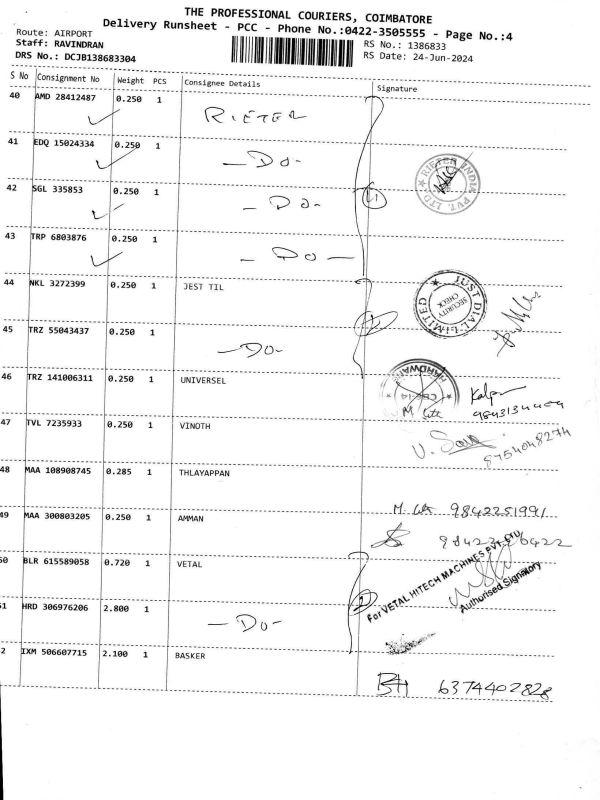 THE PROFESSIONAL COURIERS, COIMBATORE
Delivery Runsheet - PCC - Phone No.:0422-3505555 - Page No.:4
Route: AIRPORT
Staff: RAVINDRAN
DRS No.: DCJB138683304
RS No.: 1386833
RS Date: 24-Jun-2024
S No Consignment No Weight PCS Consignee Details Signature
40 AMD 28412487 0.250 1 RIETER
41 EDQ 15024334 0.250 1 -Do-
42 SGL 335853 0.250 1 -Do-
43 TRP 6803876 0.250 1 -Do-
RIETER INDIA PVT. LTD
44 NKL 3272399 0.250 1 JEST TIL
JUST DIAL LIMITED
SECURITY CHECK
45 TRZ 55043437 0.250 1 -Do-
46 TRZ 141006311 0.250 1 UNIVERSEL
HARDWARE
47 TVL 7235933 0.250 1 VINOTH
8754048274
48 MAA 108908745 0.285 1 THLAYAPPAN
9842251991
49 MAA 300803205 0.250 1 AMMAN
50 BLR 615589058 0.720 1 VETAL
For VETAL HITECH MACHINES PVT. LTD
Authorised Signatory
51 HRD 306976206 2.800 1 -Do-
2 IXM 506607715 2.100 1 BASKER
6374402828